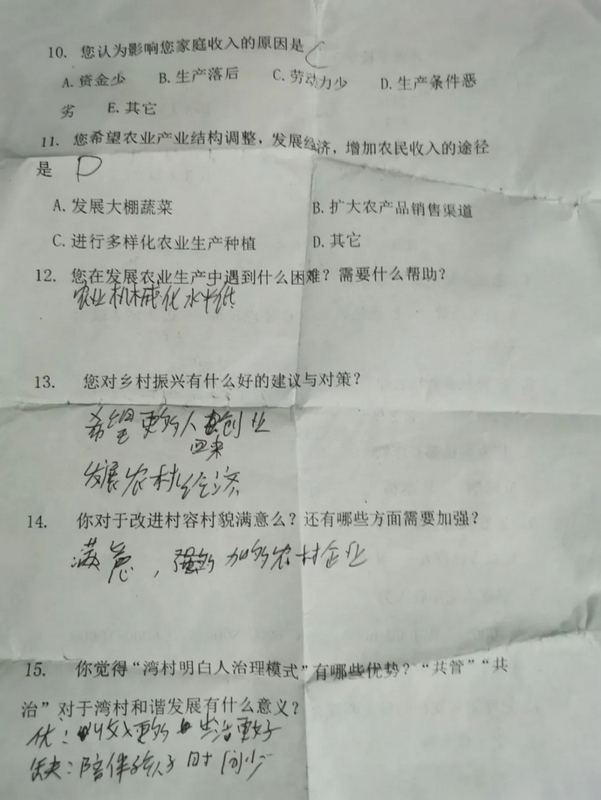 10. 您认为影响您家庭收入的原因是 C
A. 资金少 B. 生产落后 C. 劳动力少 D. 生产条件恶
劣 E. 其它
11. 您希望农业产业结构调整，发展经济，增加农民收入的途径
是 D
A. 发展大棚蔬菜 B. 扩大农产品销售渠道
C. 进行多样化农业生产种植 D. 其它
12. 您在发展农业生产中遇到什么困难？需要什么帮助？
农业机械化水平低
13. 您对乡村振兴有什么好的建议与对策？
希望更多人创业
回来
发展农村经济
14. 你对于改进村容村貌满意么？还有哪些方面需要加强？
满意，加多农村企业
15. 你觉得“湾村明白人治理模式”有哪些优势？“共管”“共
治”对于湾村和谐发展有什么意义？
优：收入更多 生活更好
缺：陪伴孩子时间少